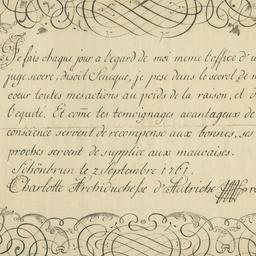 Je fais chaque jour a l'egard de moi meme l'office d'u
juge severe, disoit Seneque, je pese dans le secret de m
cœur toutes mes actions au poids de la raison, et d
l'equité. Et com̃e les temoignages avantageux de
conscience servent de recompense aux bonnes, ses
proches servent de supplice aux mauvaises.
Schönbrun le 2 Septembre 1761.
Charlotte Archiduchesse d'Autriche